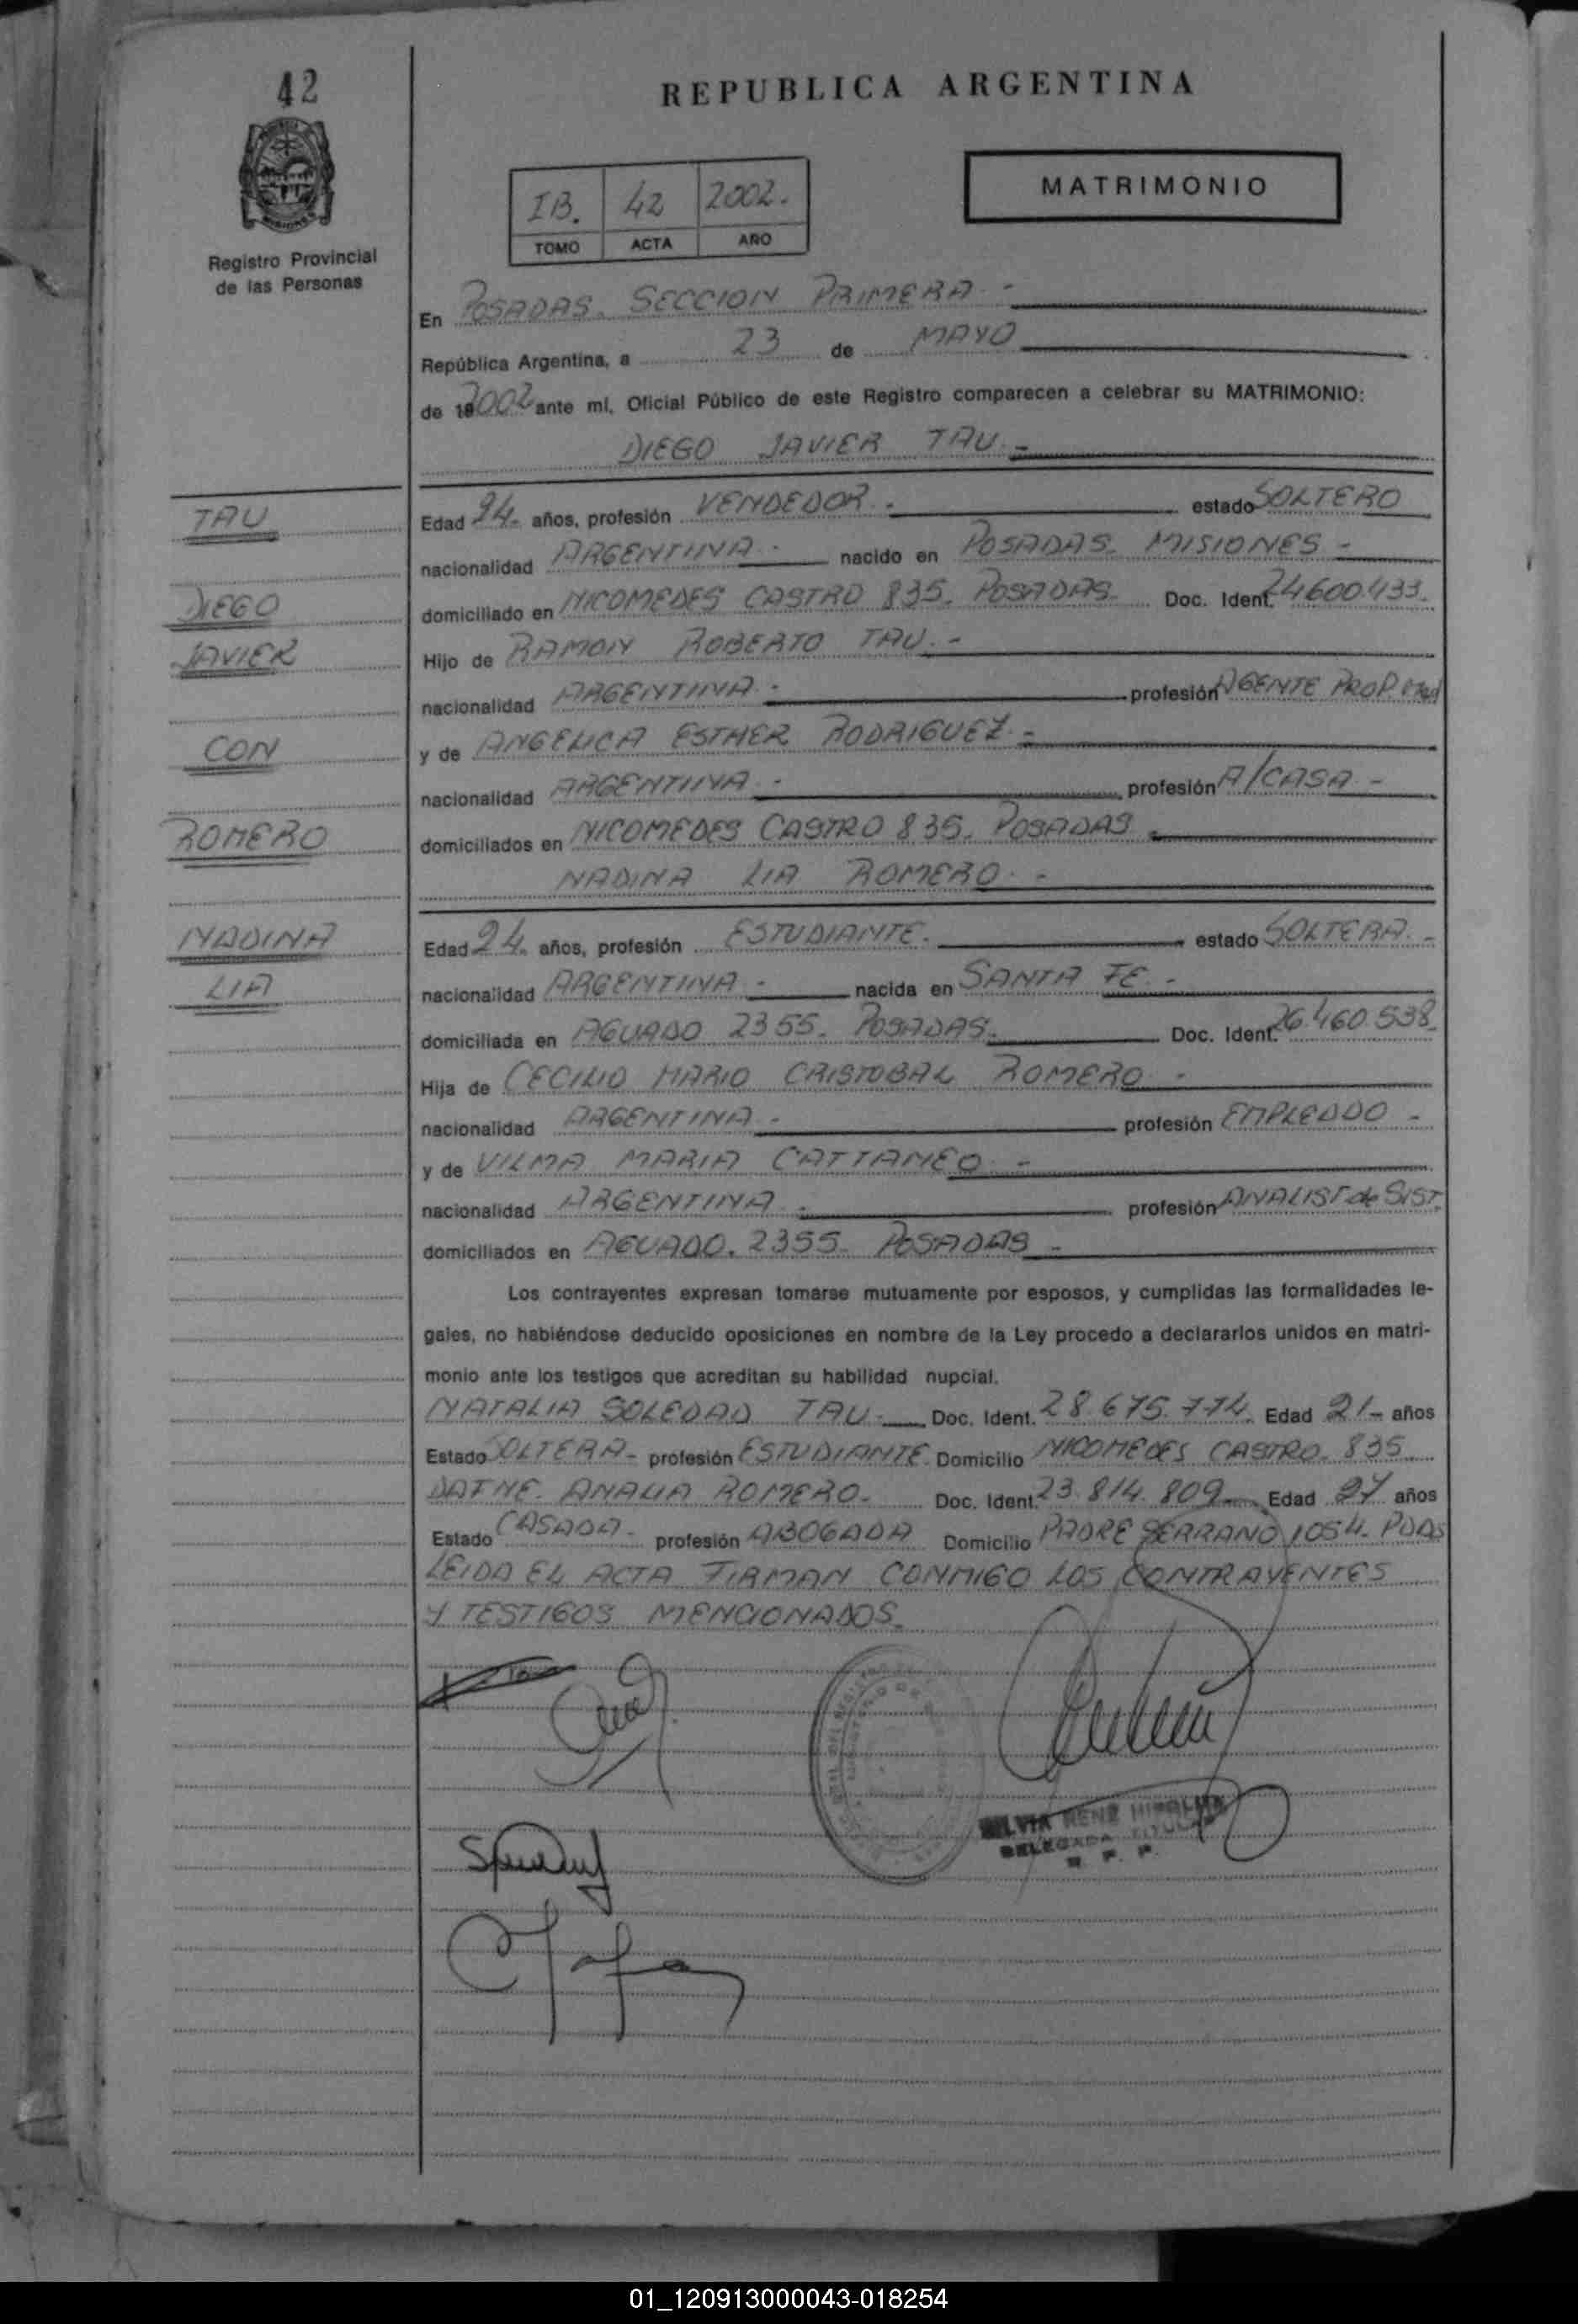 42
REPUBLICA ARGENTINA
MATRIMONIO
IB. 42 2002.
TOMO ACTA AÑO
Registro Provincial
de las Personas
En POSADAS. SECCION PRIMERA.-
República Argentina, a 23 de MAYO
de 2002 ante mí, Oficial Público de este Registro comparecen a celebrar su MATRIMONIO:
DIEGO JAVIER TAU.-
TAU
Edad 24. años, profesión VENDEDOR.- estado SOLTERO
nacionalidad ARGENTINA.- nacido en POSADAS. MISIONES-
DIEGO
domiciliado en NICOMEDES CASTRO 835. POSADAS. Doc. Ident. 24600.433.
JAVIER
Hijo de RAMON ROBERTO TAU.-
nacionalidad ARGENTINA.- profesión AGENTE PROP.
CON
y de ANGELICA ESTHER RODRIGUEZ.-
nacionalidad ARGENTINA.- profesión A/CASA.-
ROMERO
domiciliados en NICOMEDES CASTRO 835. POSADAS.
NADINA LIA ROMERO.-
NADINA
Edad 24. años, profesión ESTUDIANTE. estado SOLTERA.-
LIA
nacionalidad ARGENTINA.- nacida en SANTA FE.-
domiciliada en AGUADO 2355. POSADAS. Doc. Ident. 26.460.538.
Hija de CECILIO MARIO CRISTOBAL ROMERO-
nacionalidad ARGENTINA.- profesión EMPLEADO-
y de VILMA MARIA CATTANEO.-
nacionalidad ARGENTINA.- profesión ANALIST de SIST.
domiciliados en AGUADO. 2355. POSADAS-
Los contrayentes expresan tomarse mutuamente por esposos, y cumplidas las formalidades le-
gales, no habiéndose deducido oposiciones en nombre de la Ley procedo a declararlos unidos en matri-
monio ante los testigos que acreditan su habilidad nupcial.
NATALIA SOLEDAD TAU.- Doc. Ident. 28.675.774. Edad 21- años
Estado SOLTERA- profesión ESTUDIANTE. Domicilio NICOMEDES CASTRO. 835
DAFNE. ANALIA ROMERO. Doc. Ident. 23.814.809 Edad 27 años
Estado CASADA. profesión ABOGADA Domicilio PADRE SERRANO 1054. PDAS
LEIDA EL ACTA FIRMAN CONMIGO LOS CONTRAYENTES
Y TESTIGOS MENCIONADOS.
DELEGADA TITULAR
01_120913000043-018254